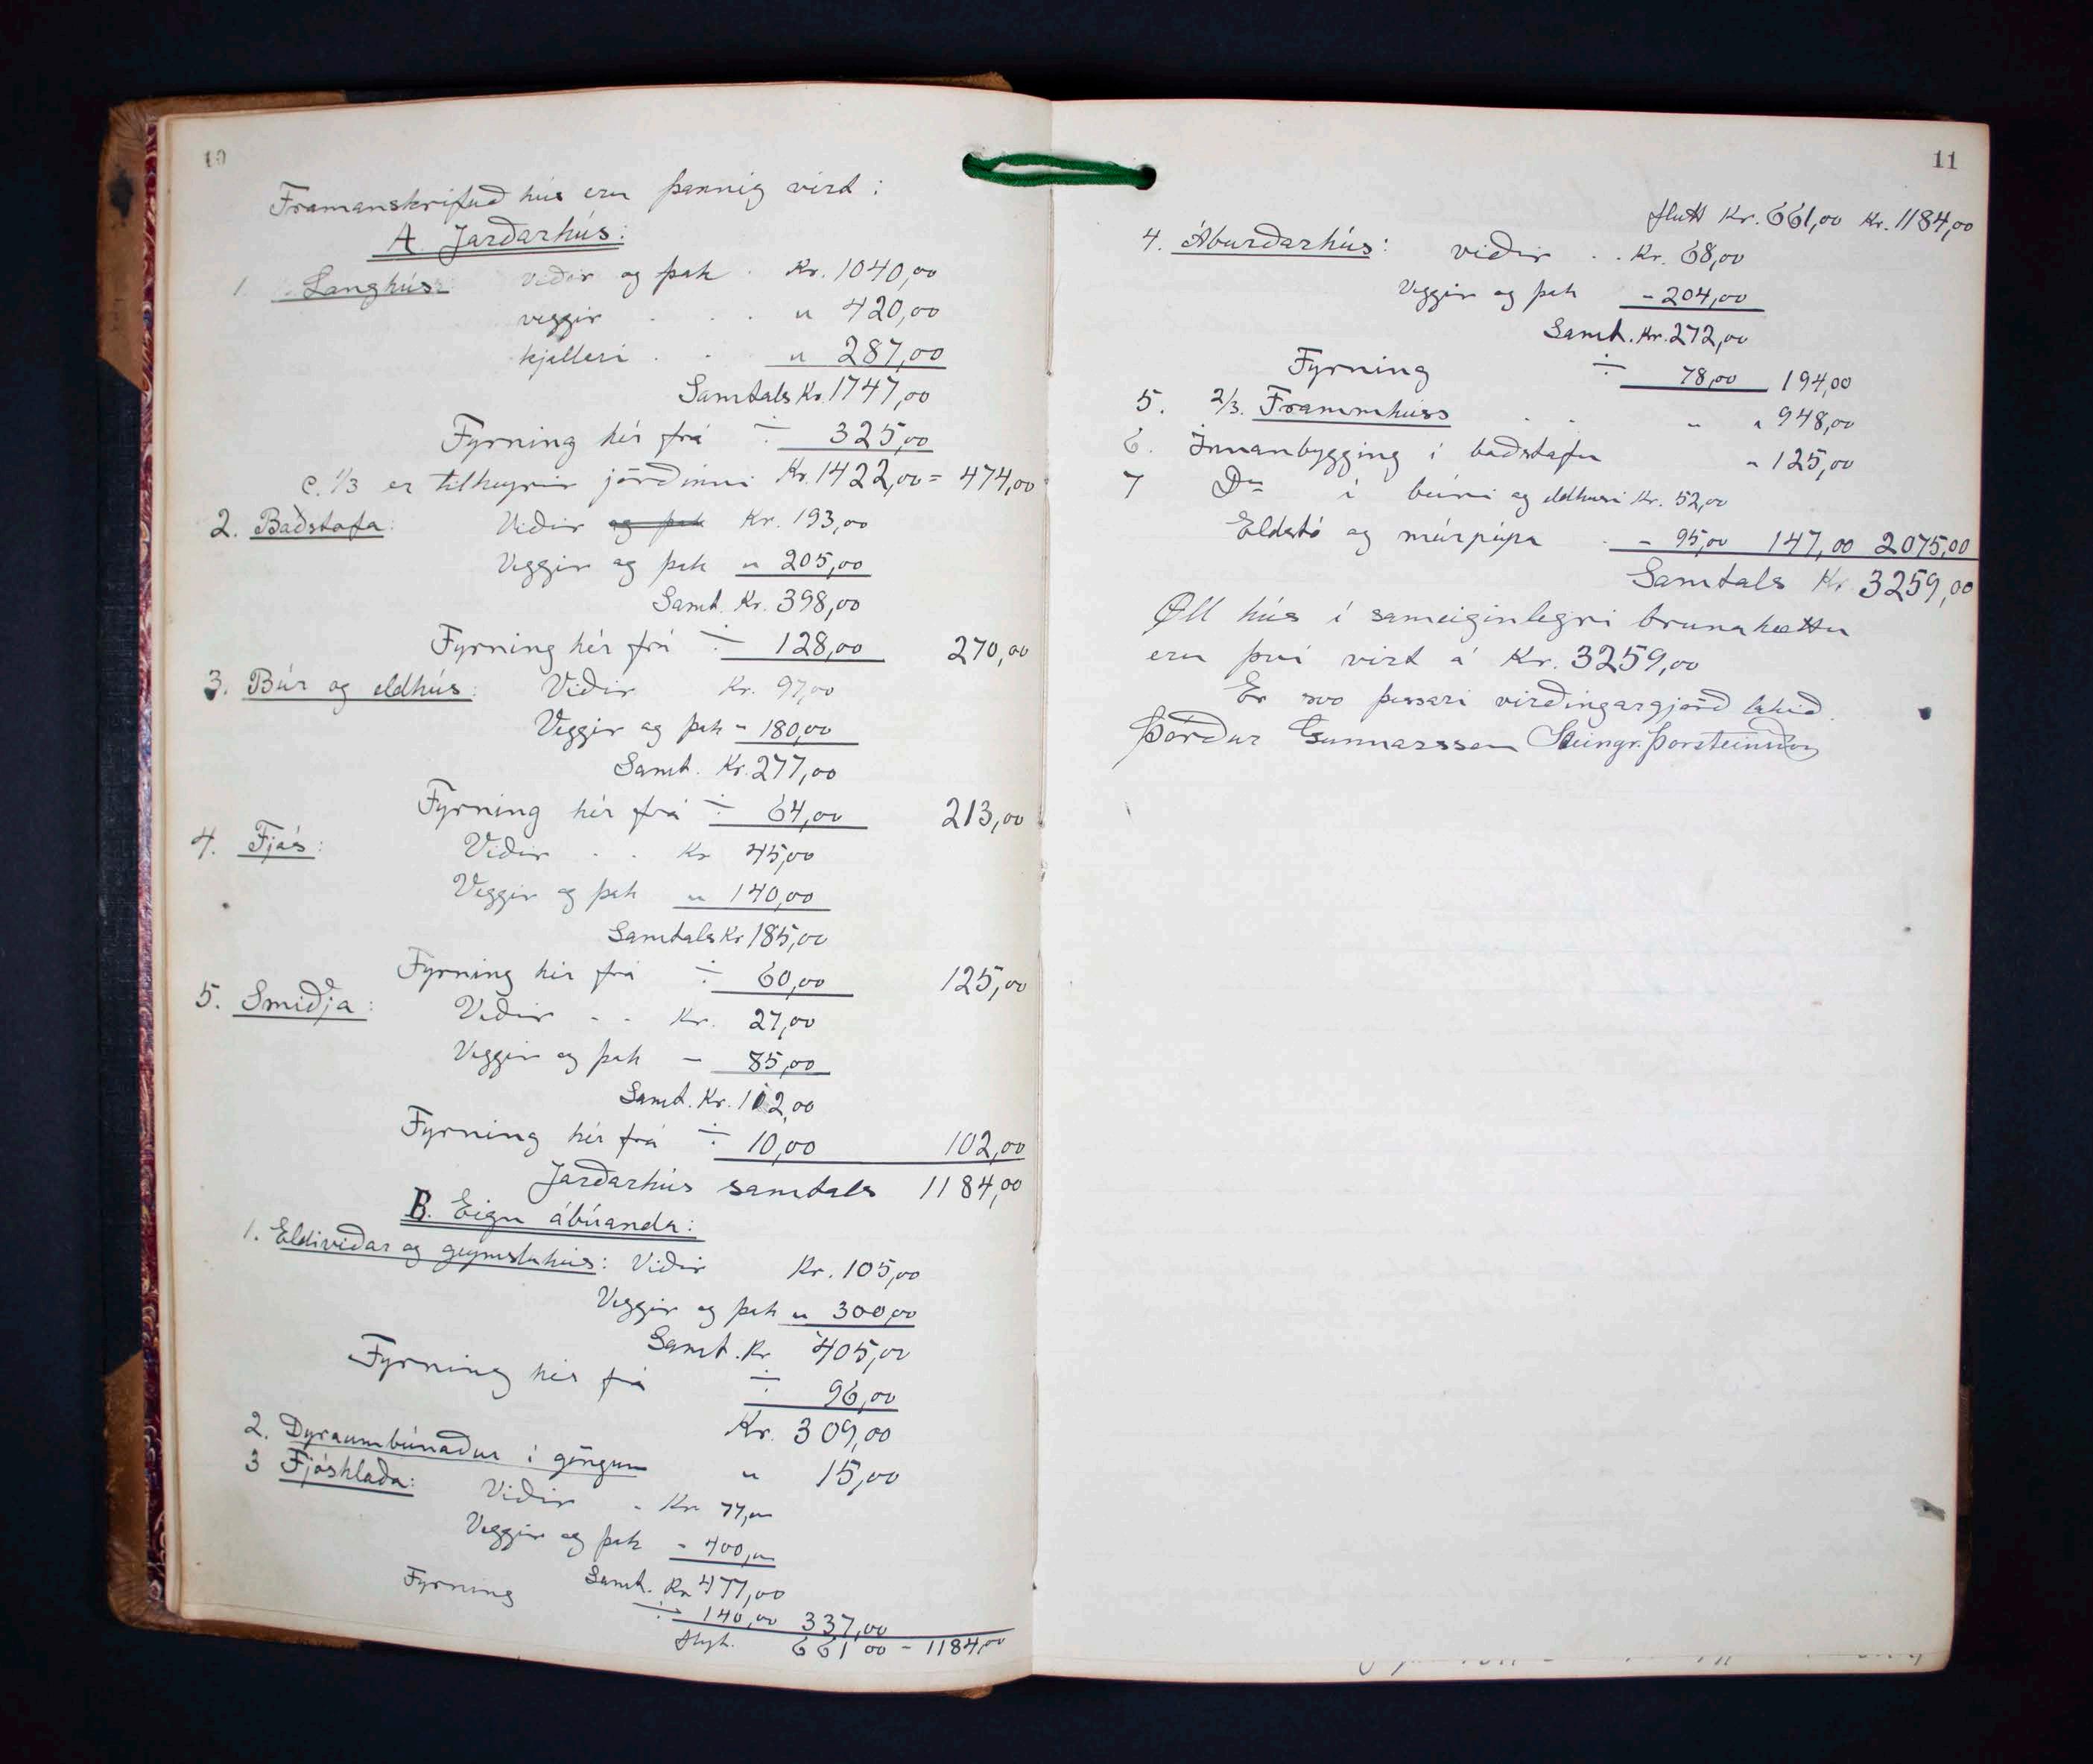 10
Framanskrifuð hús eru þannig virt:
A. Jarðarhús:
1. Langhús: viðir og þak . Kr. 1040,00
veggir . . . " 420,00
kjallari . . " 287,00
Samtals Kr. 1747,00
Fyrning hér frá ÷ 325,00
c. 1/3 er tilheyrir jörðinni Kr. 1422,00 = 474,00
2. Baðstofa: Viðir og þak Kr. 193,00
Veggir og þak " 205,00
Samt. Kr. 398,00
Fyrning hér frá ÷ 128,00 270,00
3. Búr og eldhús: Viðir Kr. 97,00
Veggir og þak - 180,00
Samt. Kr. 277,00
Fyrning hér frá ÷ 64,00 213,00
4. Fjós: Viðir . . Kr 45,00
Veggir og þak " 140,00
Samtals Kr 185,00
Fyrning hér frá ÷ 60,00 125,00
5. Smiðja: Viðir - - Kr. 27,00
Veggir og þak - 85,00
Samt. Kr. 112,00
Fyrning hér frá ÷ 10,00 102,00
Jarðarhús samtals 1184,00
B. Eign ábúanda:
1. Eldiviðar og geymsluhús: Viðir Kr. 105,00
Veggir og þak " 300,00
Samt. Kr 405,00
Fyrning hér frá ÷ 96,00
Kr. 309,00
2. Dyraumbúnaður í göngum " 15,00
3 Fjóshlaða: Viðir - Kr 77,00
Veggir og þak - 400,00
Samt. Kr 477,00
Fyrning ÷ 140,00 337,00
Flyt. 661 00 - 1184,00
11
flutt Kr. 661,00 Kr. 1184,00
4. Áburðarhús: viðir . . Kr. 68,00
Veggir og þak - 204,00
Samt. Kr. 272,00
Fyrning ÷ 78,00 194,00
5. 2/3. Frammhúss . . " " 948,00
6. Innanbygging í baðstofu " 125,00
7 Do í búri og eldhúsi Kr. 52,00
Eldstó og múrpípa . - 95,00 147,00 2075,00
Samtals Kr. 3259,00
Öll hús í sameiginlegri brunahættu
eru því virt á Kr. 3259,00
Er svo þessari virðingargjörð lokið.
Þórður Gunnarsson Steingr. Þorsteinsson